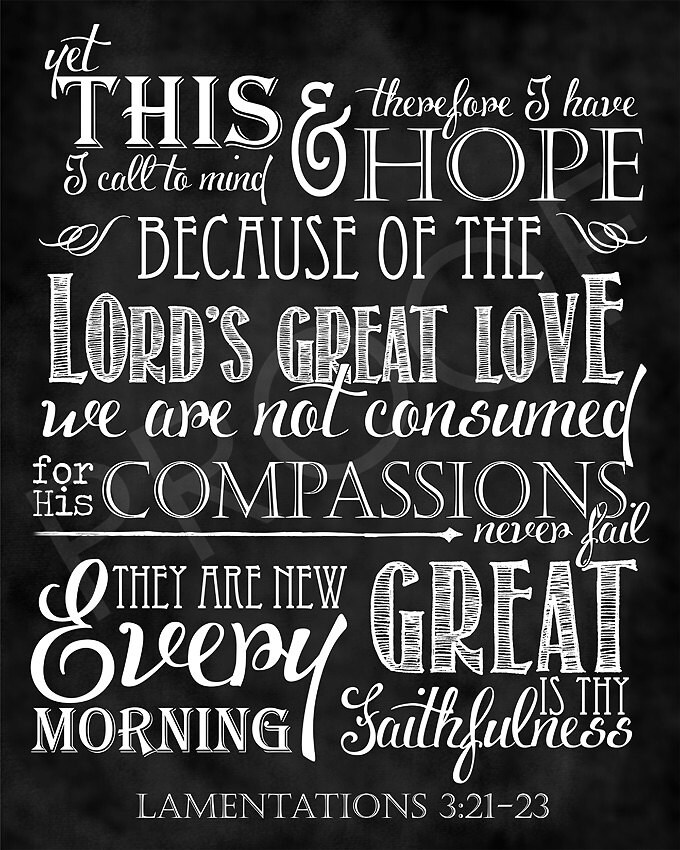 yet
THIS & therefore I have
I call to mind HOPE
BECAUSE OF THE
LORD'S GREAT LOVE
we are not consumed
for His COMPASSIONS
never fail
THEY ARE NEW
Every
MORNING
GREAT
IS THY
Faithfulness
LAMENTATIONS 3:21-23
PROOF